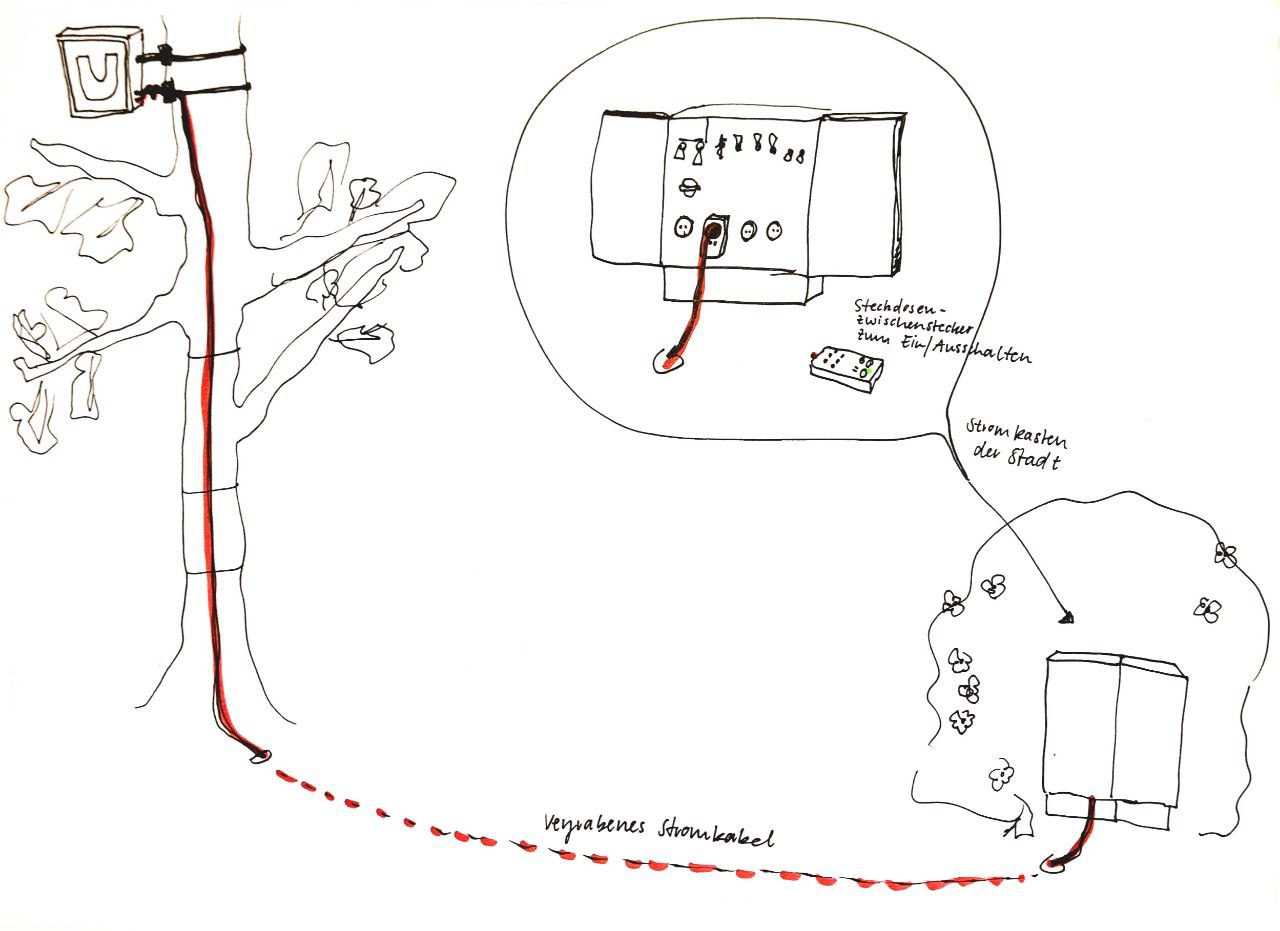 U
Stechdosen-
zwischenstecker
zum Ein/Ausschalten
Stromkasten
der Stadt
Vergrabenes Stromkabel